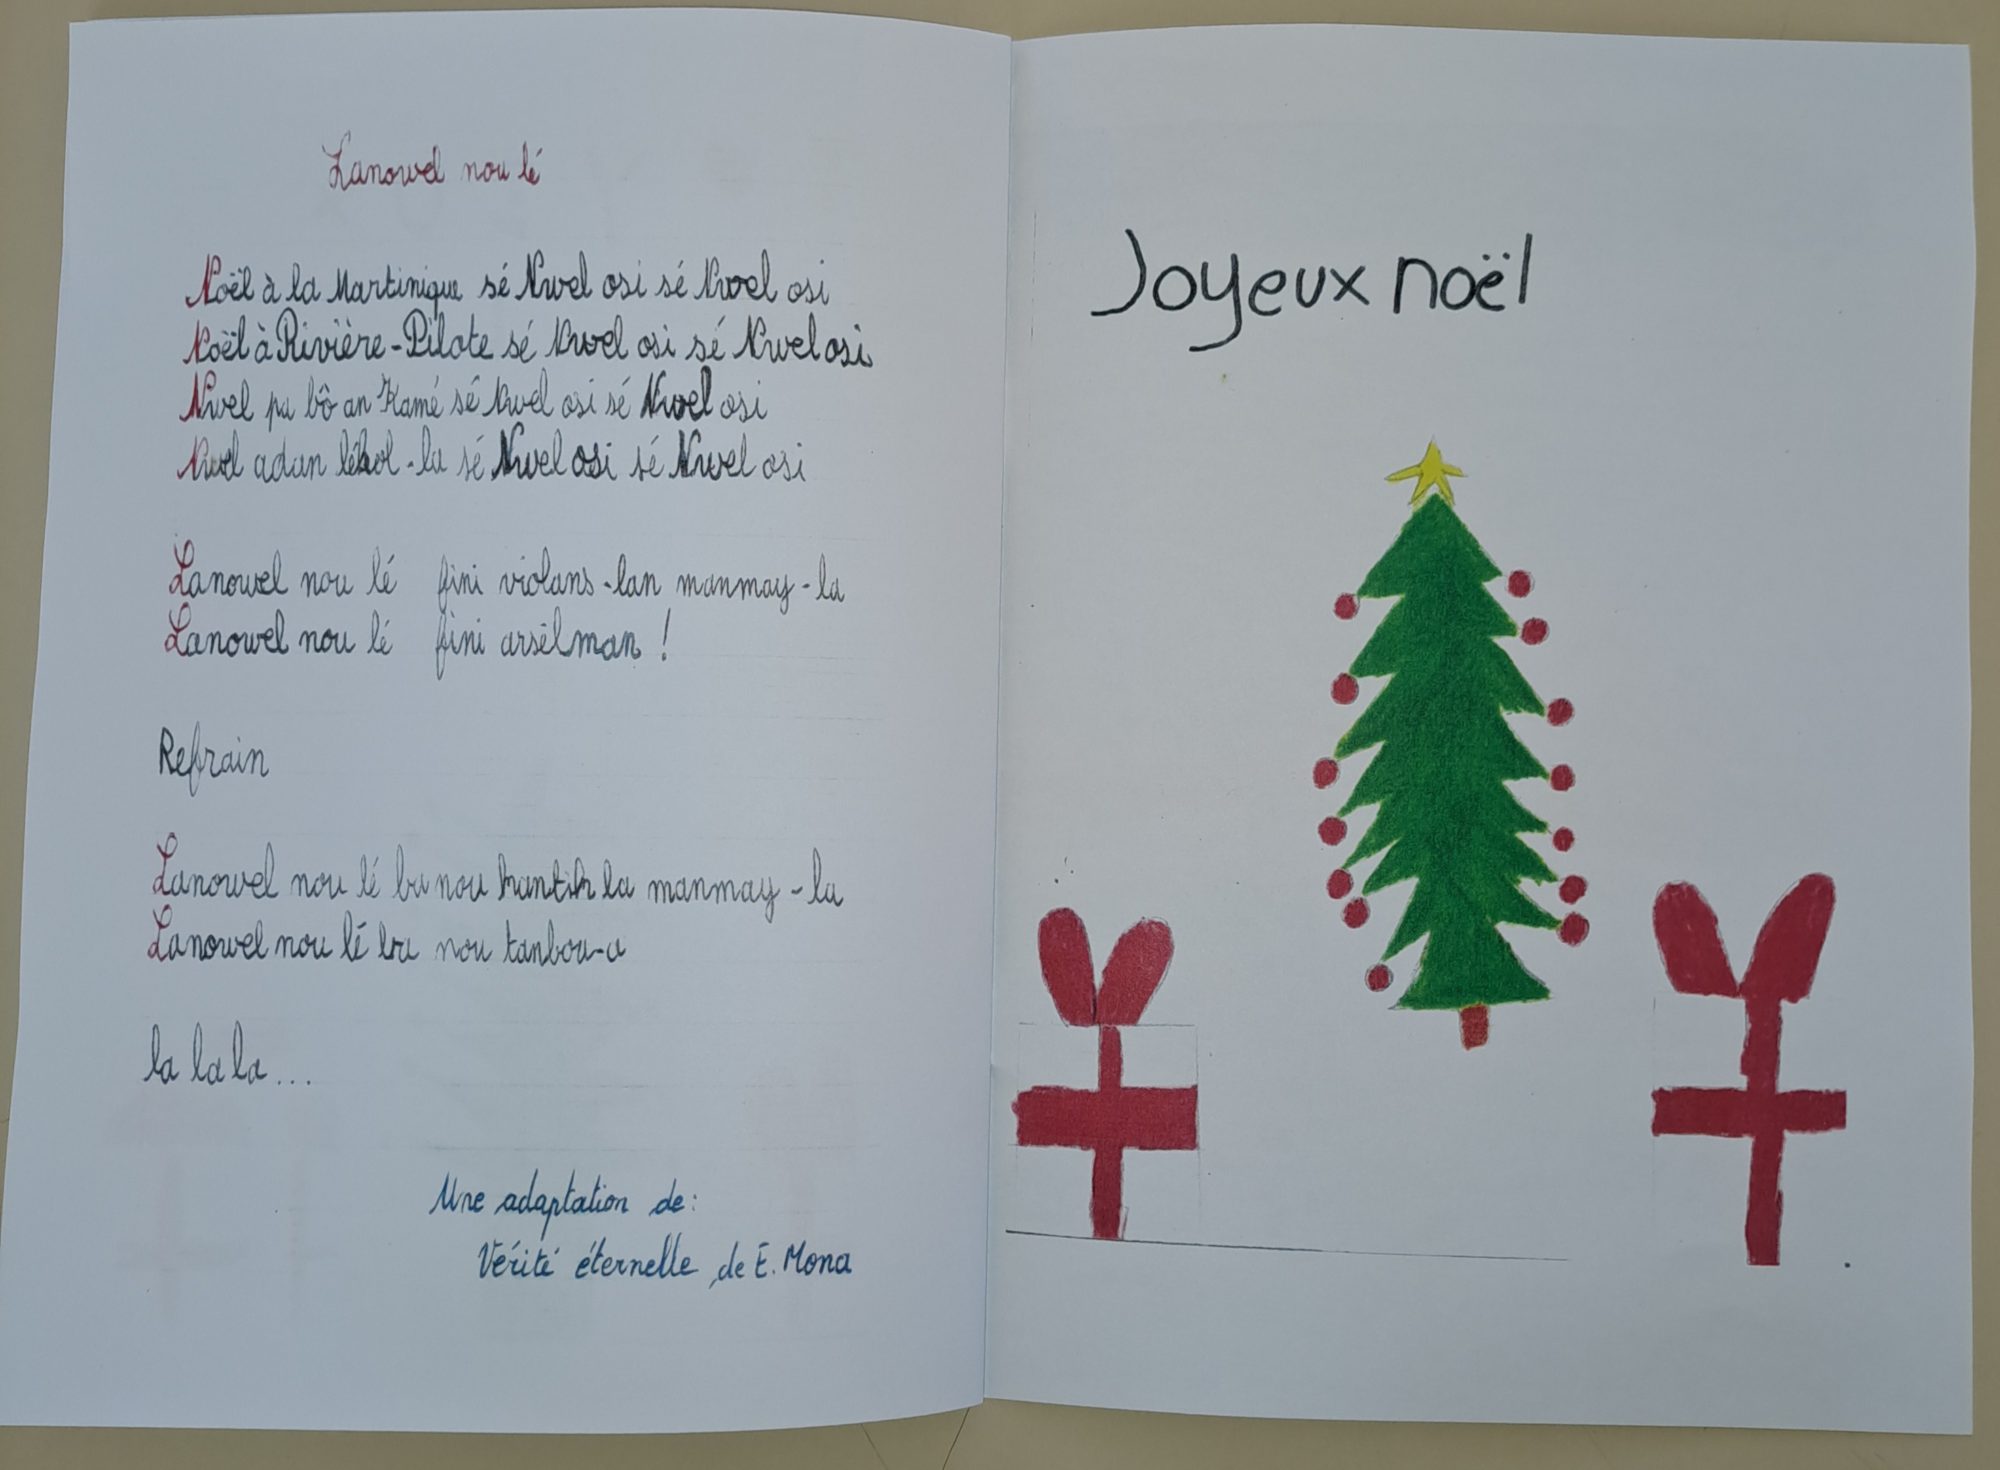 Lanowel nou lé
Noël à la Martinique sé Nwel osi sé Nwel osi
Noël à Rivière-Pilote sé Nwel osi sé Nwel osi
Nwel pa bô an Kamé sé Nwel osi sé Nwel osi
Nwel adan lékol-la sé Nwel osi sé Nwel osi
Lanowel nou lé fini violans-lan manmay-la
Lanowel nou lé fini arsèlman !
Refrain
Lanowel nou lé ba nou kantik la manmay-la
Lanowel nou lé ba nou tanbou-a
la la la...
Une adaptation de:
Vérité éternelle, de E. Mona
Joyeux noël